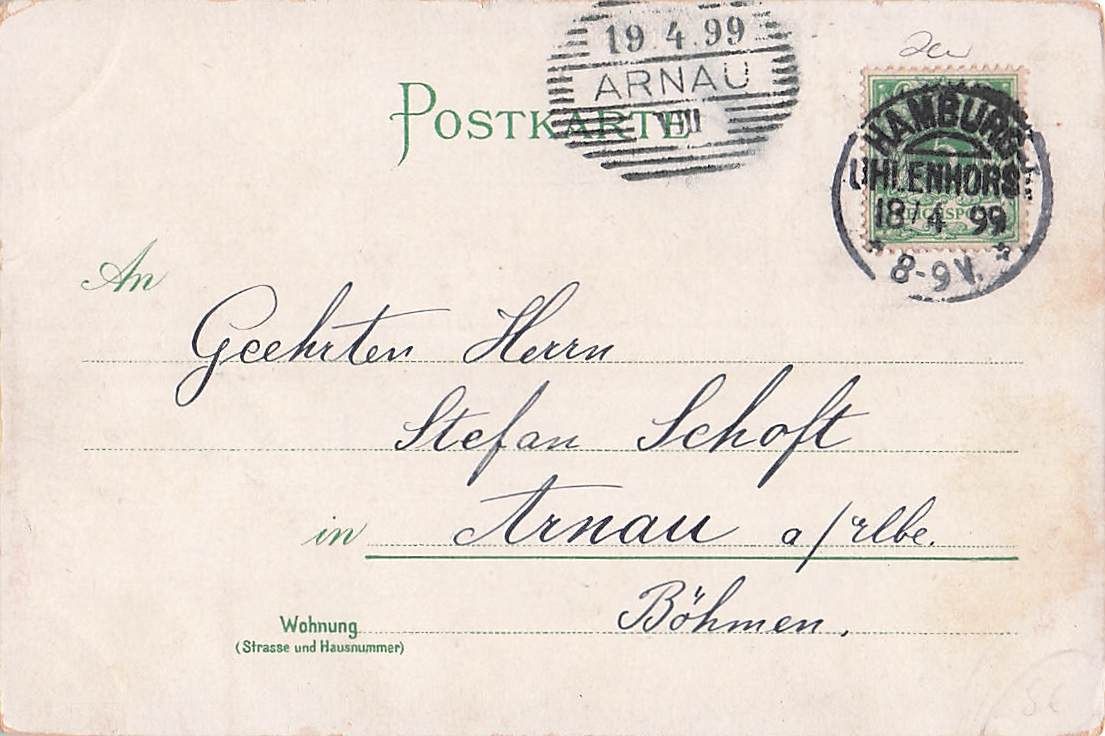 19.4.99
ARNAU
VIII
POSTKARTE
HAMBURG
UHLENHORST
18/4 99
8-9 V.
5
REICHSPOST
An
Geehrten Herrn
Stefan Schoft
in Arnau a/Elbe.
Böhmen.
Wohnung
(Strasse und Hausnummer)